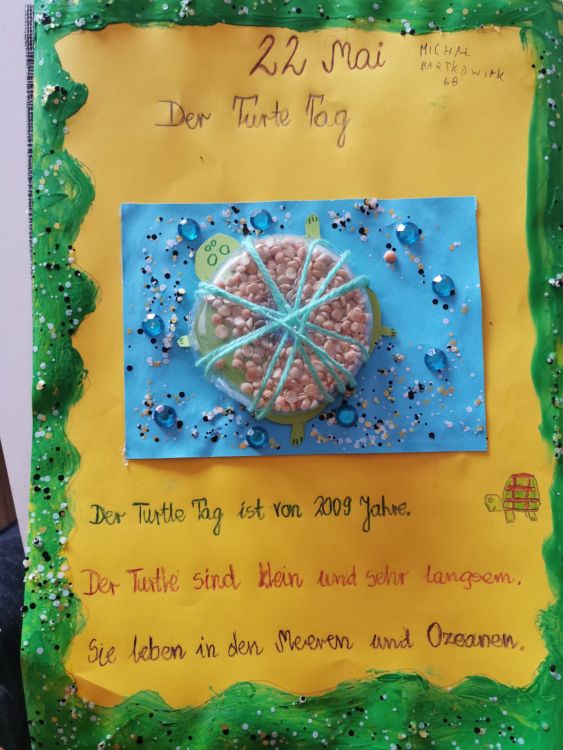 22 Mai
MICHAŁ
BARTKOWIAK
6B
Der Turte Tag
Der Turtle Tag ist von 2009 Jahre.
Der Turtle sind klein und sehr langsem.
Sie leben in den Meeren und Ozeanen.